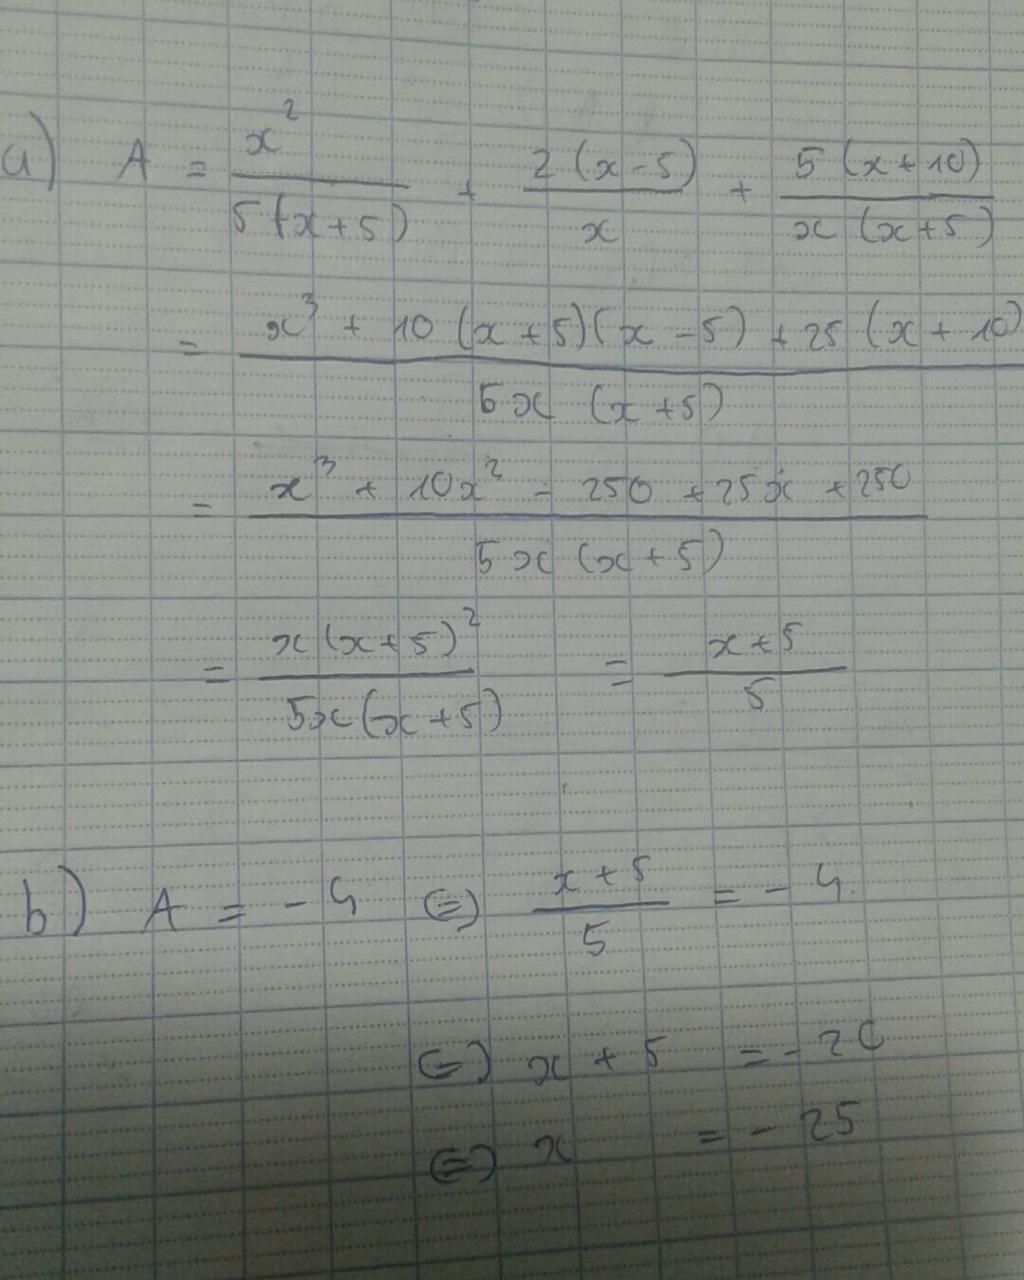 a) A = x²/5(x+5) + 2(x-5)/x + 5(x+10)/x(x+5)
= x³ + 10(x+5)(x-5) + 25(x+10)/5x(x+5)
= x³ + 10x² - 250 + 25x + 250/5x(x+5)
= x(x+5)²/5x(x+5) = x+5/5
b) A = -4 ⇔ x+5/5 = -4
⇔ x + 5 = -20
⇔ x = -25